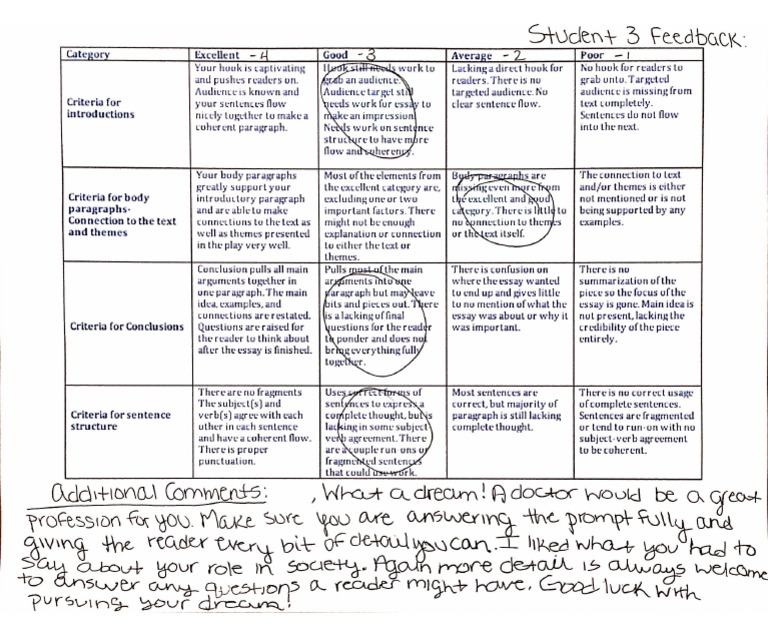 Student 3 Feedback:
Category
Excellent - 4
Good - 3
Average - 2
Poor - 1
Criteria for
introductions
Your hook is captivating
and pushes readers on.
Audience is known and
your sentences flow
nicely together to make a
coherent paragraph.
Hook still needs work to
grab an audience.
Audience target still
needs work for essay to
make an impression
Needs work on sentence
structure to have more
flow and coherency.
Lacking a direct hook for
readers. There is no
targeted audience. No
clear sentence flow.
No hook for readers to
grab onto. Targeted
audience is missing from
text completely.
Sentences do not flow
into the next.
Criteria for body
paragraphs-
Connection to the text
and themes
Your body paragraphs
greatly support your
introductory paragraph
and are able to make
connections to the text as
well as themes presented
in the play very well.
Most of the elements from
the excellent category are,
excluding one or two
important factors. There
might not be enough
explanation or connection
to either the text or
themes.
Body paragraphs are
missing even more from
the excellent and good
category. There is little to
no connection to themes
or the text itself.
The connection to text
and/or themes is either
not mentioned or is not
being supported by any
examples.
Criteria for Conclusions
Conclusion pulls all main
arguments together in
one paragraph. The main
idea, examples, and
connections are restated.
Questions are raised for
the reader to think about
after the essay is finished.
Pulls most of the main
arguments into one
paragraph but may leave
bits and pieces out. There
is a lacking of final
questions for the reader
to ponder and does not
bring everything fully
together.
There is confusion on
where the essay wanted
to end up and gives little
to no mention of what the
essay was about or why it
was important.
There is no
summarization of the
piece so the focus of the
essay is gone. Main idea is
not present, lacking the
credibility of the piece
entirely.
Criteria for sentence
structure
There are no fragments
The subject(s) and
verb(s) agree with each
other in each sentence
and have a coherent flow.
There is proper
punctuation.
Uses correct forms of
sentences to express a
complete thought, but is
lacking in some subject
verb agreement. There
are a couple run ons or
fragmented sentences
that could use work.
Most sentences are
correct, but majority of
paragraph is still lacking
complete thought.
There is no correct usage
of complete sentences.
Sentences are fragmented
or tend to run-on with no
subject-verb agreement
to be coherent.
Additional Comments: , What a dream! A doctor would be a great
profession for you. Make sure you are answering the prompt fully and
giving the reader every bit of detail you can. I liked what you had to
say about your role in society. Again more detail is always welcome
to answer any questions a reader might have. Good luck with
pursuing your dream!